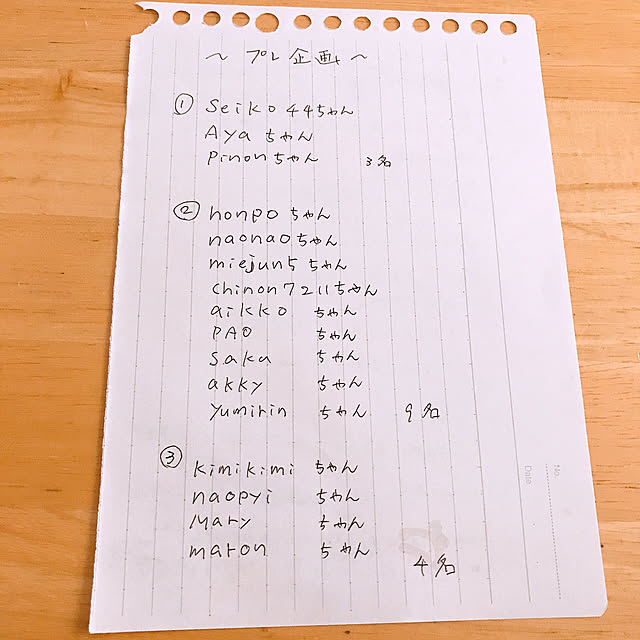 ～プレ企画～
① Seiko44ちゃん
Ayaちゃん
pinonちゃん 3名
② honpoちゃん
naonaoちゃん
miejun5ちゃん
chinon7211ちゃん
aikko ちゃん
PAO ちゃん
saku ちゃん
akky ちゃん
yumirin ちゃん 9名
③ kimikimi ちゃん
naopyi ちゃん
Mary ちゃん
maron ちゃん
4名
No.
Date